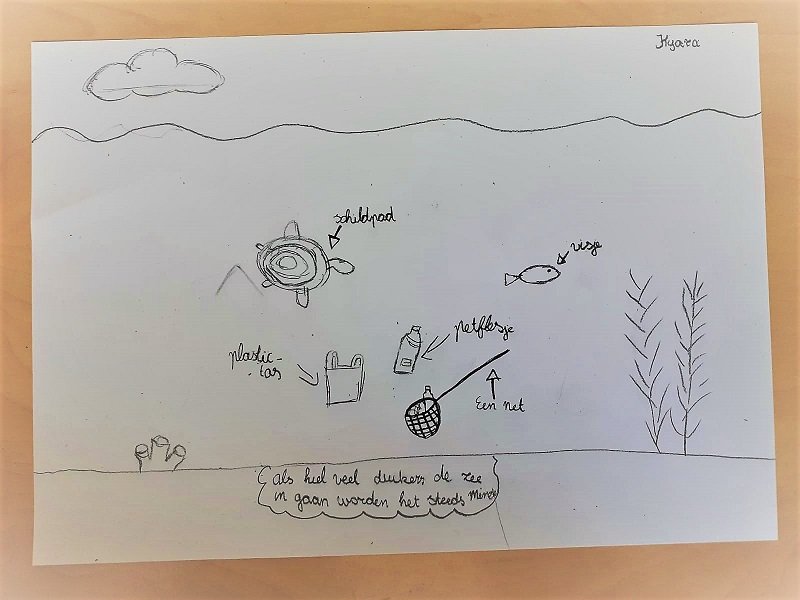 Kyara
schildpad
visje
petflesje
plastic-
tas
Een net
als hiel veel duikers de zee
in gaan worden het steeds minder